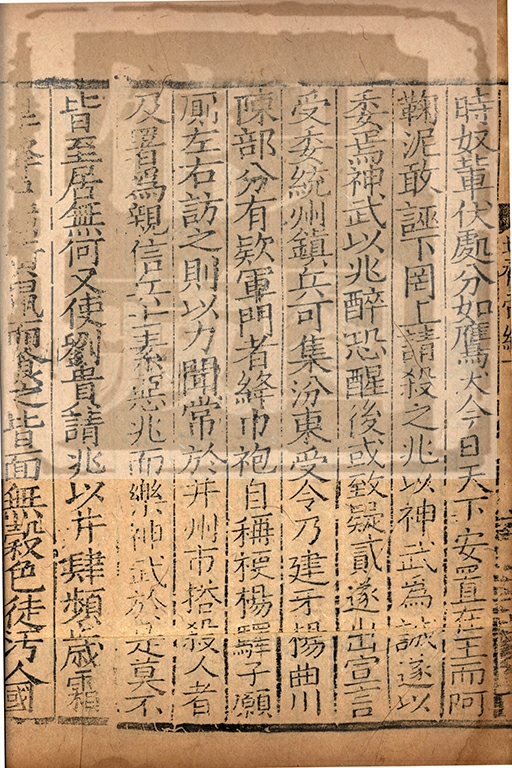 時奴輩伏處分如鷹犬今日天下安置在王而阿
鞠泥敢誣下罔上請殺之兆以神武為誠遂以
委焉神武以兆醉恐醒後或致疑貳遂出宣言
受委統州鎮兵可集汾東受令乃建牙楊曲川
陳部分有欵軍門者絳巾袍自稱梗楊驛子願
厠左右訪之則以力聞常於并州市搭殺人者
乃署為親信兵士素惡兆而樂神武於是莫不
皆至居無何又使劉貴請兆以并肆頻歲霜
鼠而食之皆面無穀色徒汚人國